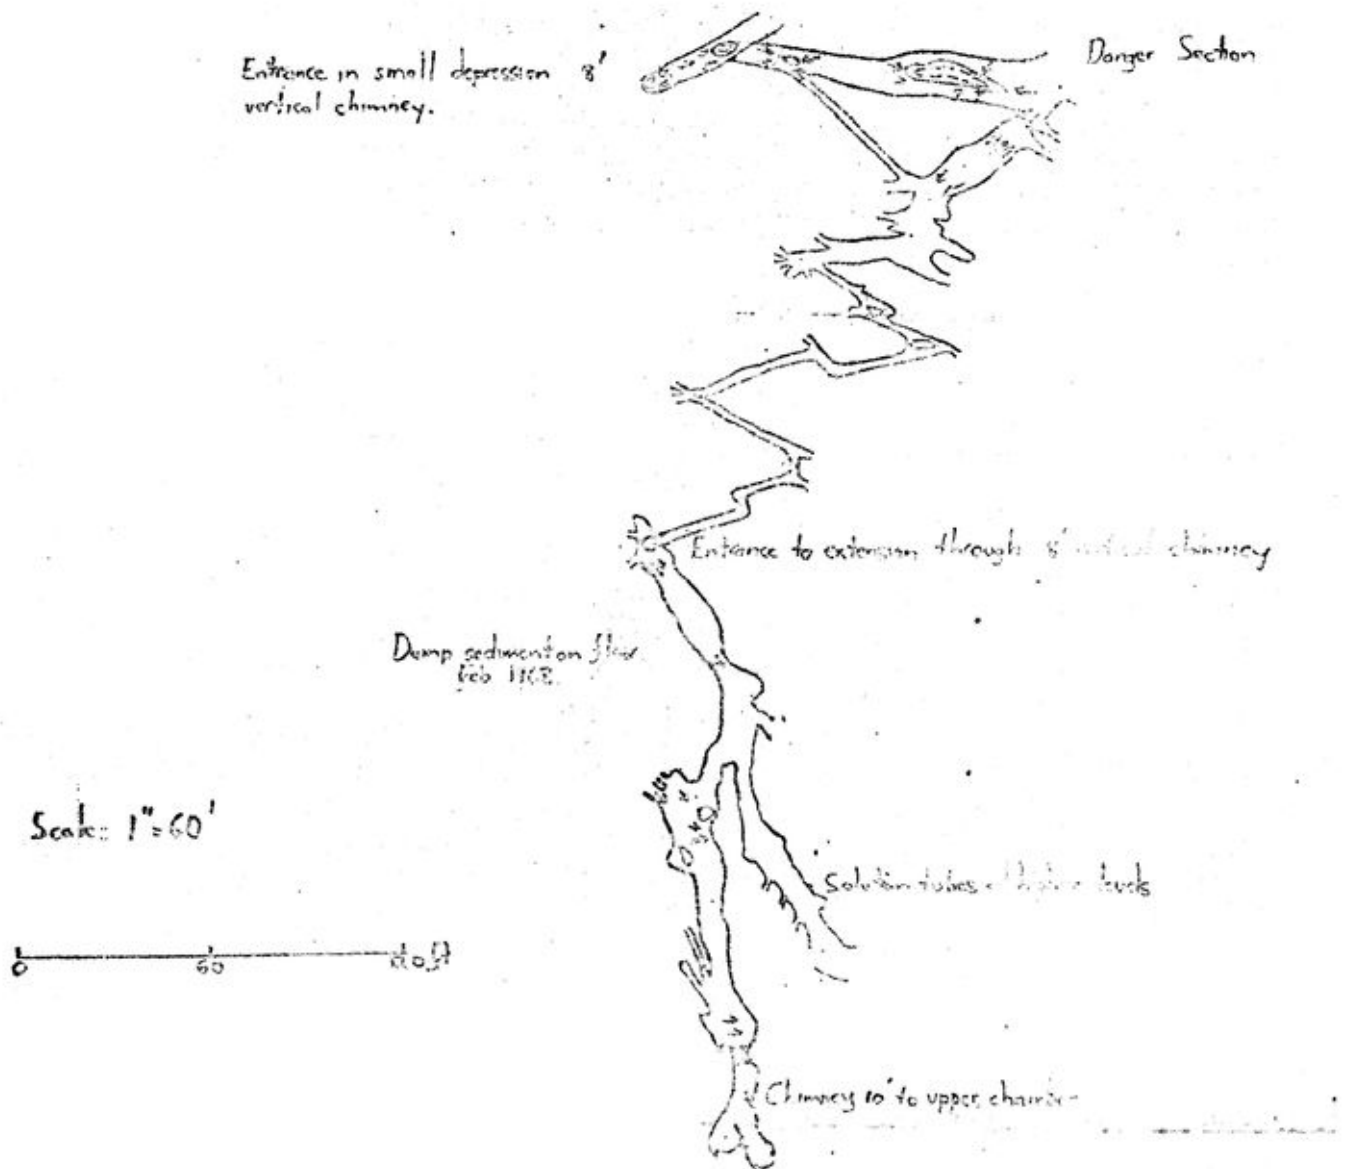 Entrance in small depression 8'
vertical chimney.
Danger Section
Entrance to extension through 8' vertical chimney
Damp sediment on floor
Feb
Scale: 1"=60'
0 60 120 ft
Solution tubes higher levels
Chimney 10' to upper chamber